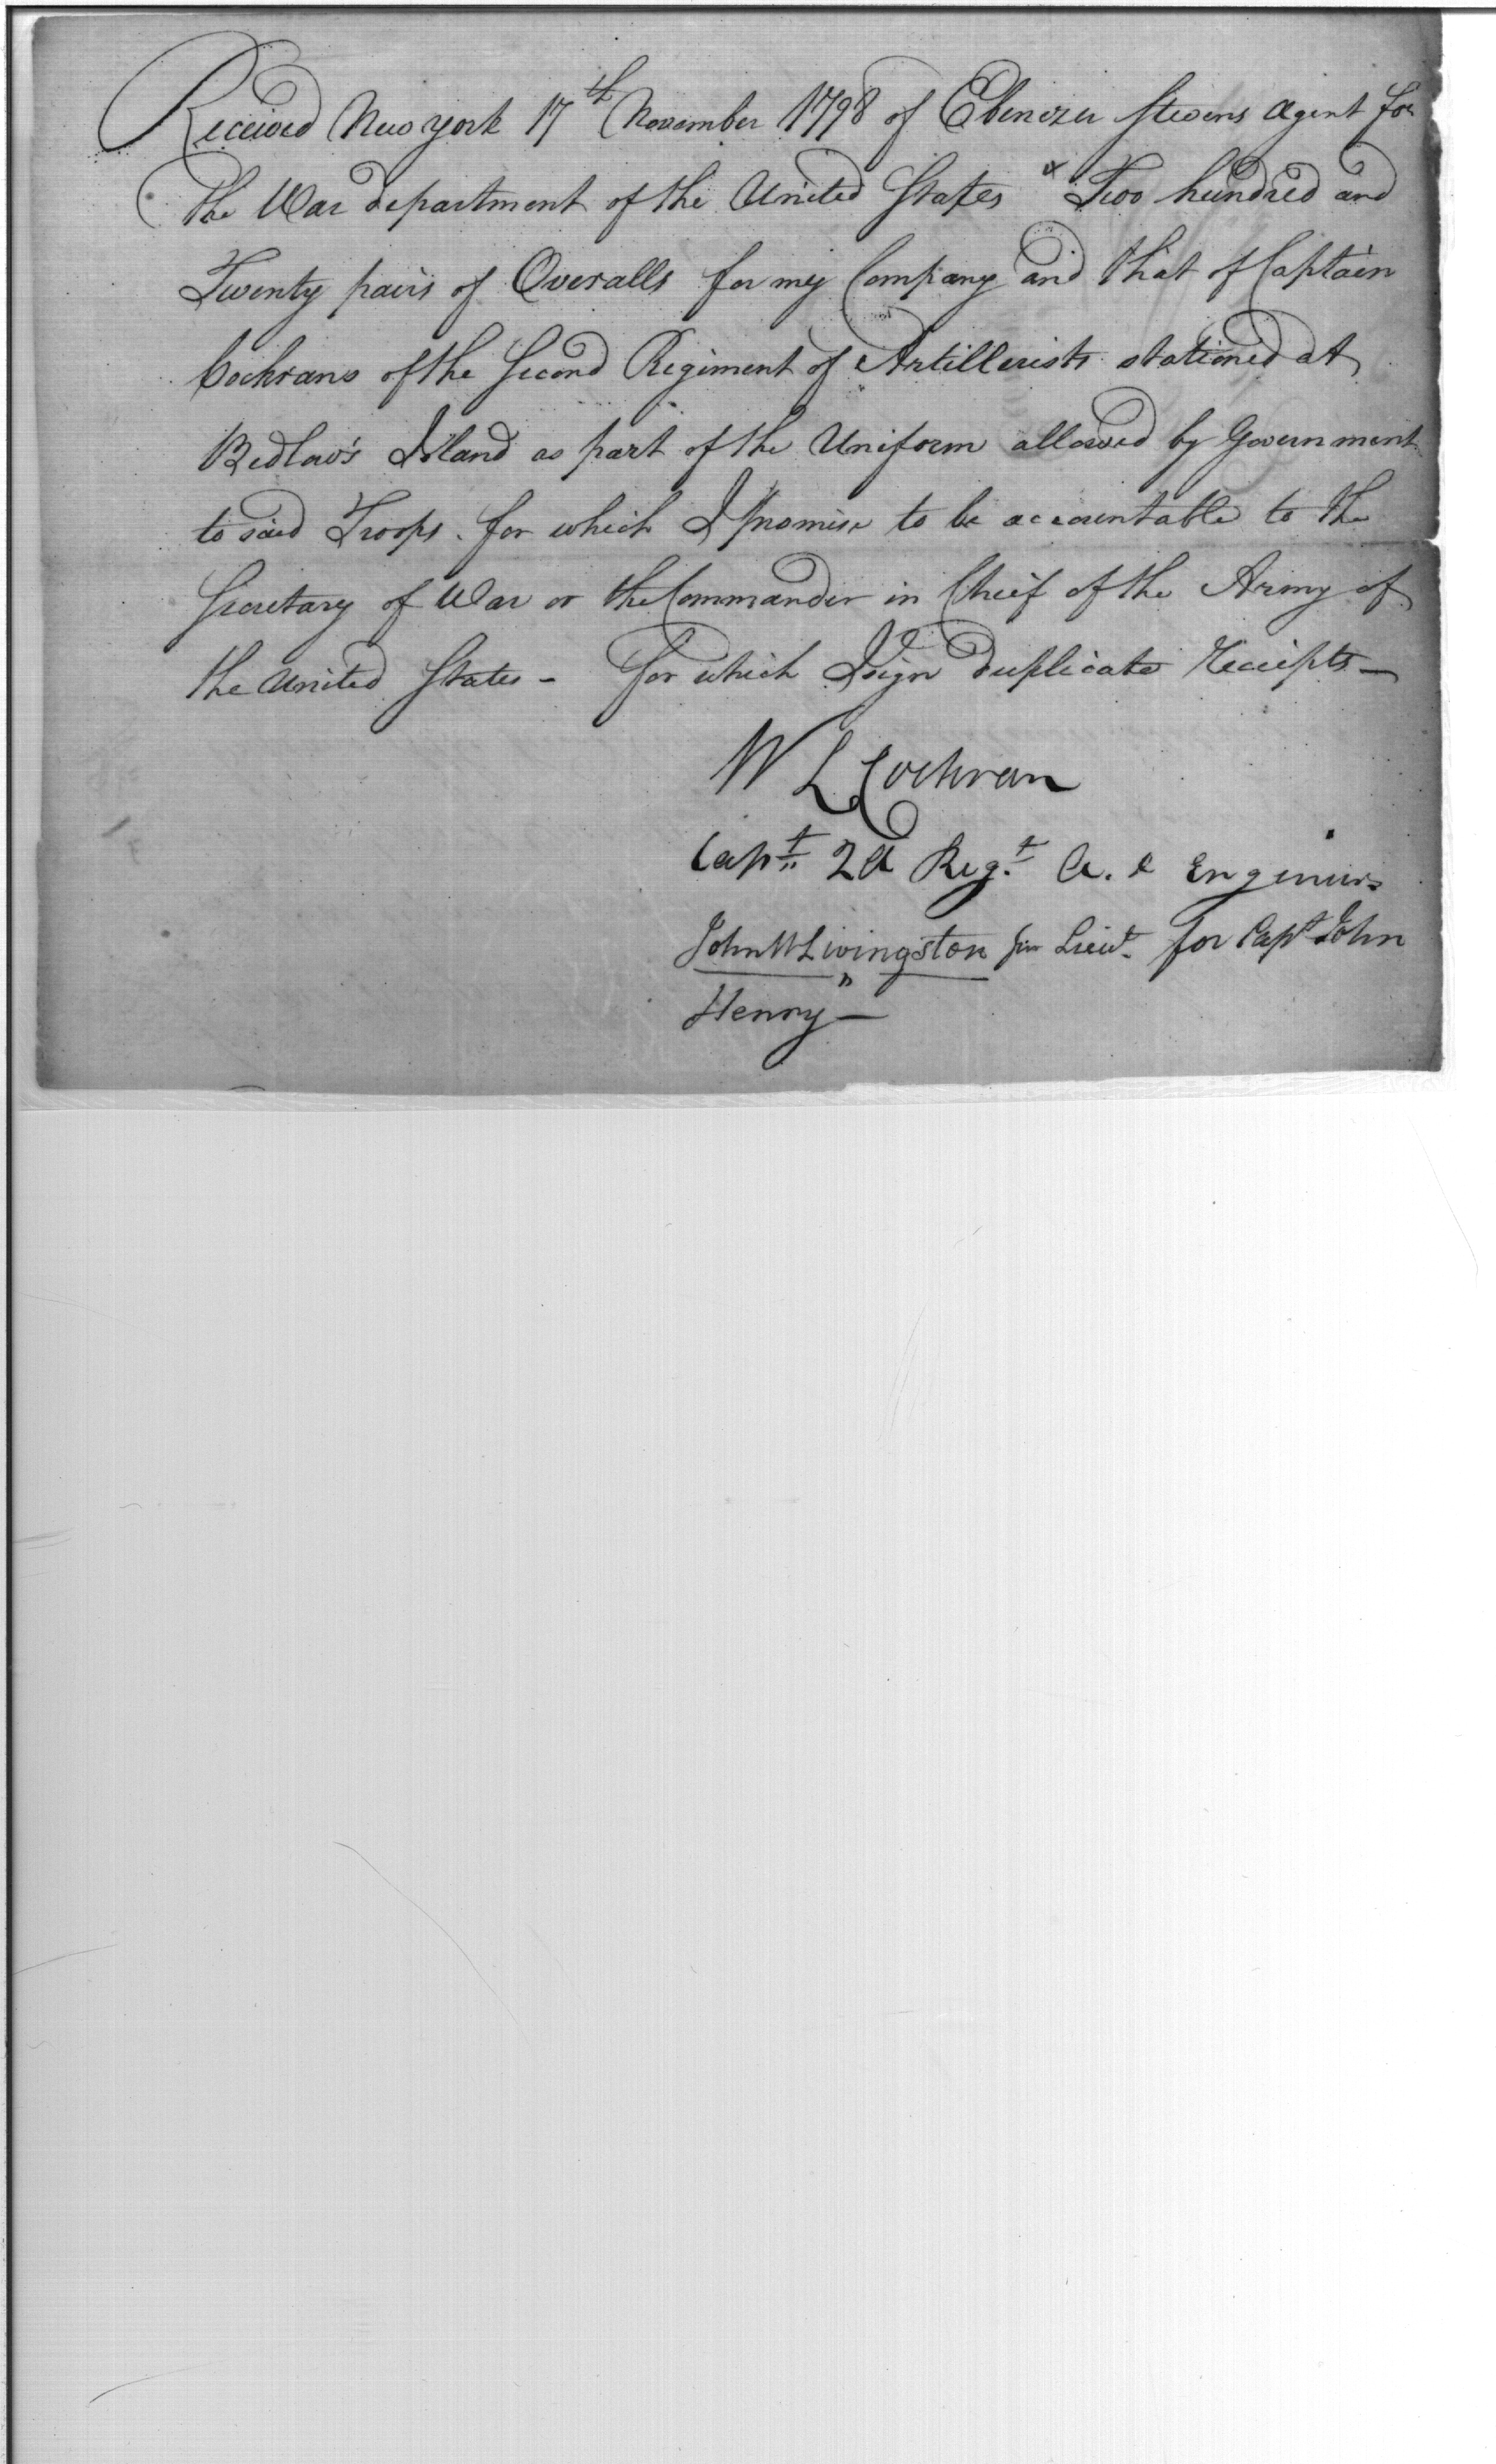 Received New york 17th November 1798 of Ebenezer Stevens Agent for
the War department of the United States x Two hundred and
Twenty pairs of Overalls for my Company and that of Captain
Cochrans of the Second Regiment of Artillerists stationed at
Bedlow's Island as part of the Uniform allowed by Government
to said Troops. for which I promise to be accountable to the
Secretary of War or the Commander in Chief of the Army of
the United States - For which I sign duplicate Receipts -
W L Cochran
Capt 2d Regt A. & Engineers
John W Livingston Lieut. for Capt John
Henry -